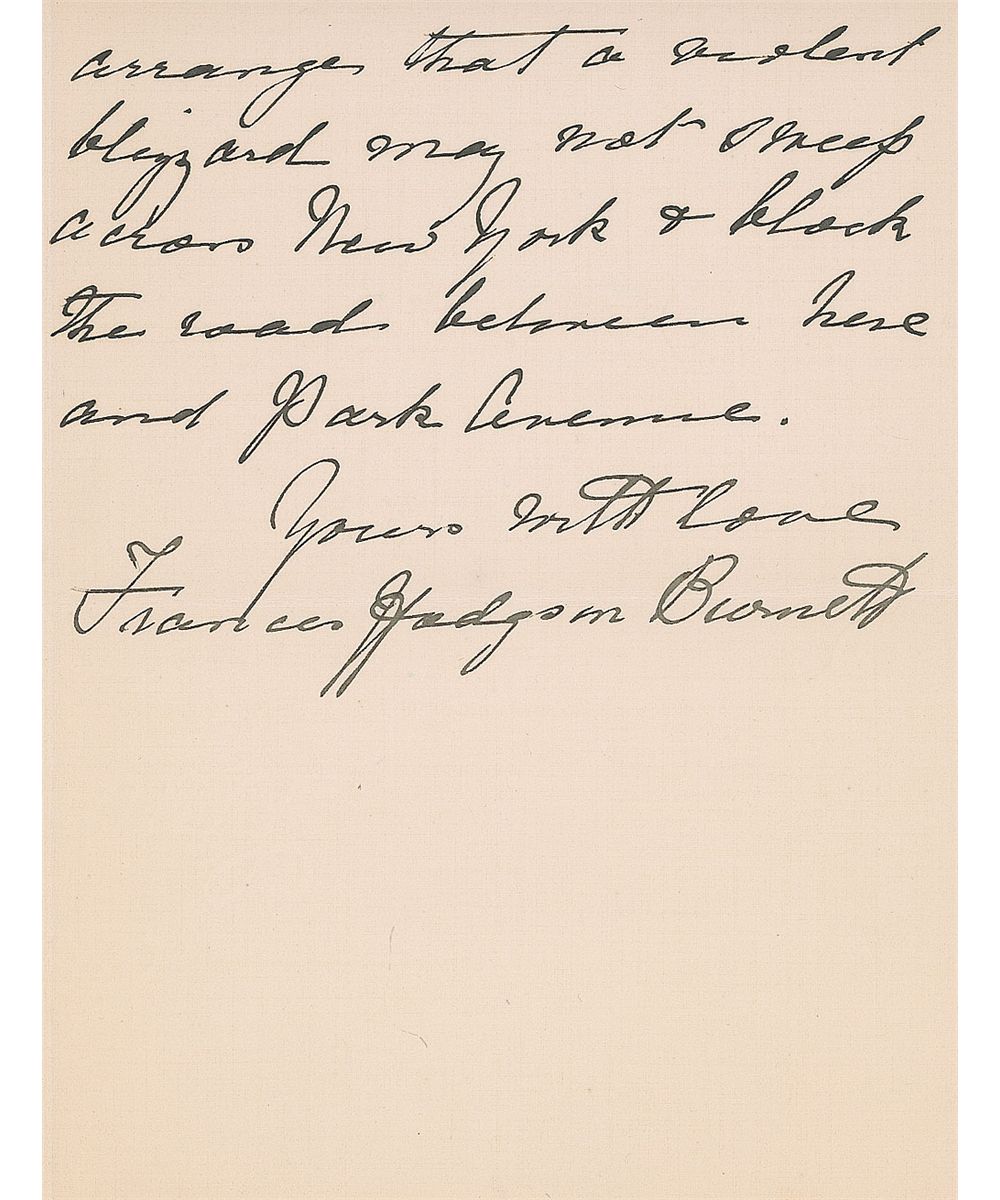 arrange that a violent
blizzard may not sweep
across New York & block
the road between here
and Park Avenue.
Yours with love
Frances Hodgson Burnett